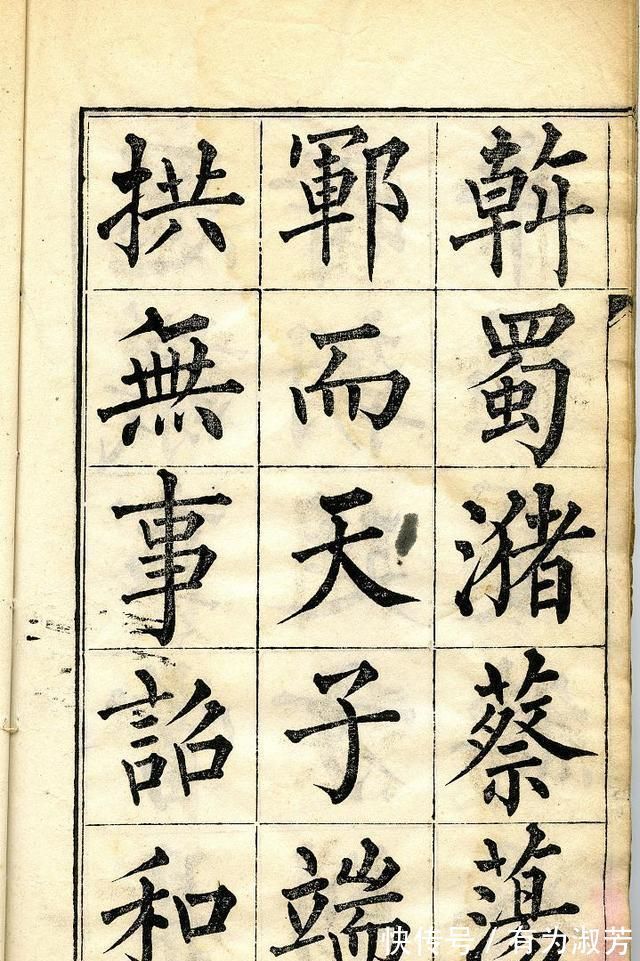 斡蜀瀦蔡蕩
鄆而天子端
拱無事詔和
快传号 / 有为淑芳